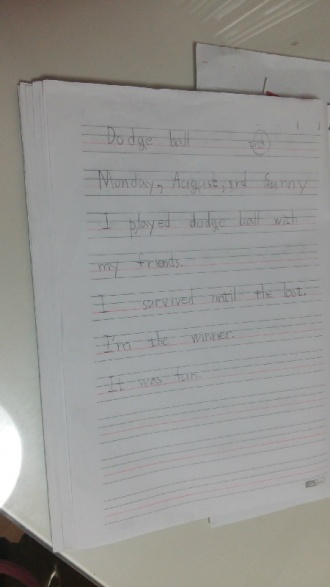 Dodge ball
Monday, August, 3rd Sunny
I played dodge ball with
my friends.
I survived until the last.
I'm the winner.
It was fun